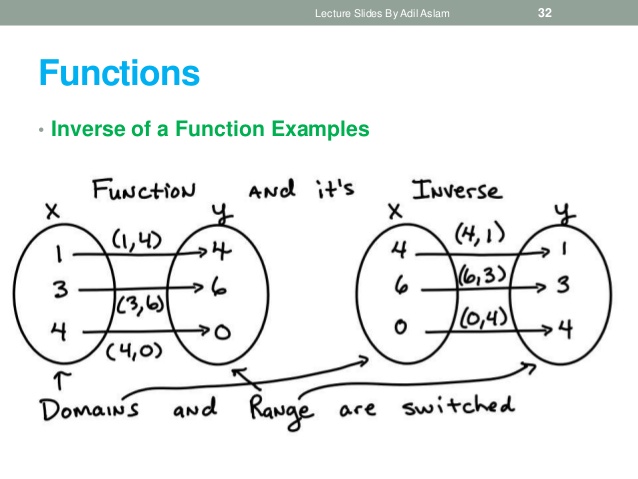 Lecture Slides By Adil Aslam 32
Functions
• Inverse of a Function Examples
Function and it's Inverse
x y x y
1 (1,4) 4 4 (4,1) 1
3 (3,6) 6 6 (6,3) 3
4 (4,0) 0 0 (0,4) 4
Domains and Range are switched